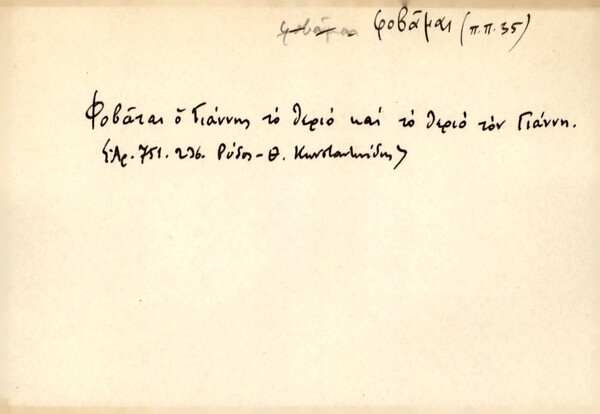 φοβᾶμαι φοβᾶμαι (π.π. 35)
Φοβᾶται ὁ Γιάννης τὸ θεριό καί τὸ θεριό τὸν Γιάννη.
Ἀρ. 751. 236. Ρόδος - Θ. Κωνσταντινίδης